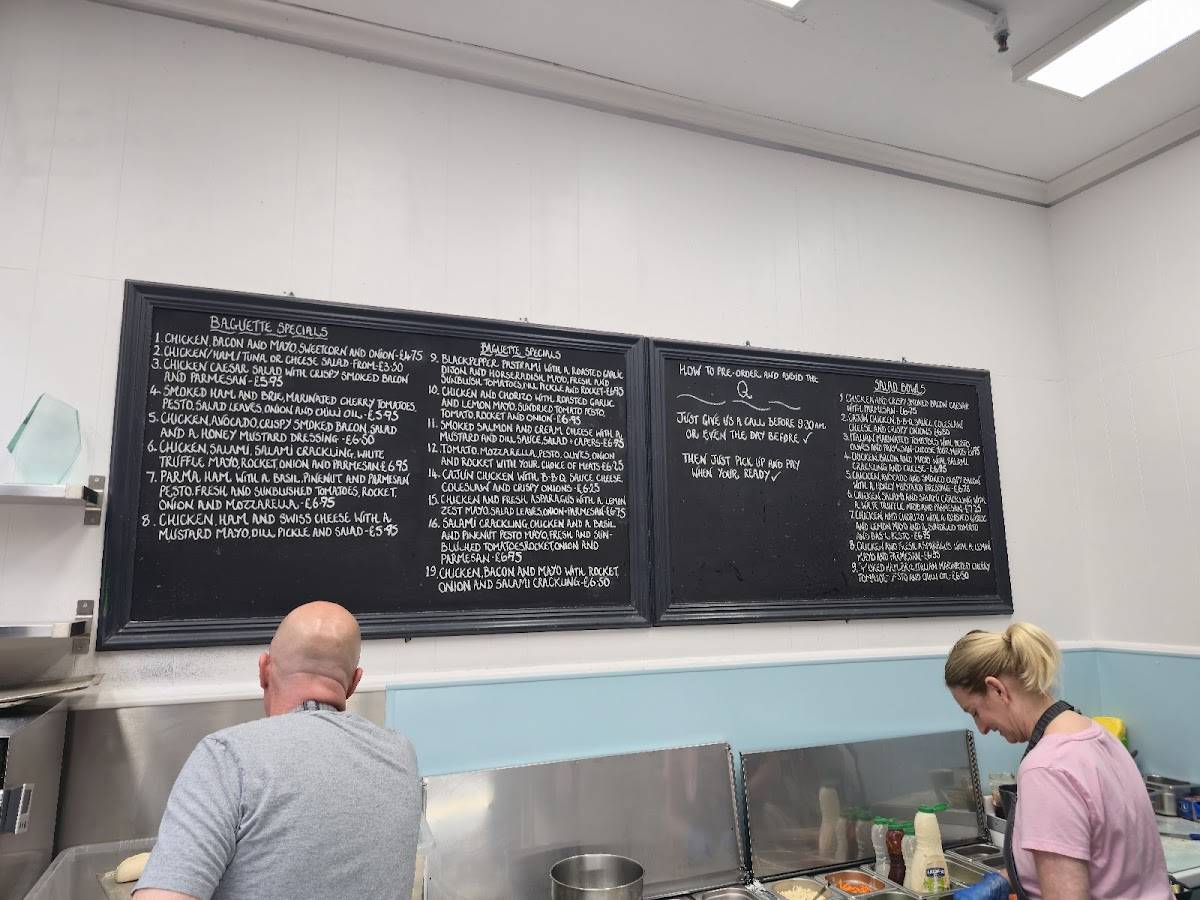 BAGUETTE SPECIALS
1. CHICKEN, BACON AND MAYO, SWEETCORN AND ONION-£4.75
2. CHICKEN/HAM/TUNA OR CHEESE SALAD-FROM-£3.50
3. CHICKEN CAESAR SALAD WITH CRISPY SMOKED BACON
AND PARMESAN-£5.95
4. SMOKED HAM AND BRIE, MARINATED CHERRY TOMATOES,
PESTO, SALAD LEAVES, ONION AND CHILLI OIL-£5.95
5. CHICKEN, AVOCADO, CRISPY SMOKED BACON, SALAD
AND A HONEY MUSTARD DRESSING-£6.50
6. CHICKEN, SALAMI, SALAMI CRACKLING, WHITE
TRUFFLE MAYO, ROCKET, ONION AND PARMESAN £6.95
7. PARMA HAM WITH A BASIL, PINENUT AND PARMESAN
PESTO, FRESH AND SUNBLUSHED TOMATOES, ROCKET,
ONION AND MOZZARELLA-£6.95
8. CHICKEN, HAM AND SWISS CHEESE WITH A
MUSTARD MAYO, DILL PICKLE AND SALAD-£5.95
BAGUETTE SPECIALS
9. BLACKPEPPER PASTRAMI WITH A ROASTED GARLIC
DIJON AND HORSERADISH MAYO, FRESH AND
SUNBLUSH TOMATOES, DILL PICKLE AND ROCKET-£6.95
10. CHICKEN AND CHORIZO WITH ROASTED GARLIC
AND LEMON MAYO, SUNDRIED TOMATO PESTO,
TOMATO, ROCKET AND ONION-£6.95
11. SMOKED SALMON AND CREAM CHEESE WITH A
MUSTARD AND DILL SAUCE, SALAD + CAPERS-£6.95
12. TOMATO, MOZZARELLA, PESTO, OLIVES, ONION
AND ROCKET WITH YOUR CHOICE OF MEATS-£6.25
14. CAJUN CHICKEN WITH B-B-Q SAUCE, CHEESE,
COLESLAW AND CRISPY ONIONS-£6.25
15. CHICKEN AND FRESH ASPARAGUS WITH A LEMON
ZEST MAYO, SALAD LEAVES, ONION+PARMESAN-£6.75
16. SALAMI CRACKLING, CHICKEN AND A BASIL
AND PINENUT PESTO MAYO, FRESH AND SUN-
BLUSHED TOMATOES, ROCKET, ONION AND
PARMESAN-£6.95
19. CHICKEN, BACON AND MAYO WITH ROCKET,
ONION AND SALAMI CRACKLING-£6.50
HOW TO PRE-ORDER AND AVOID THE
Q
JUST GIVE US A CALL BEFORE 9.30AM
OR EVEN THE DAY BEFORE ✓
THEN JUST PICK UP AND PAY
WHEN YOUR READY ✓
SALAD BOWLS
1. CHICKEN AND CRISPY SMOKED BACON CAESAR
WITH PARMESAN-£6.75
2. CAJUN CHICKEN, B-B-Q SAUCE, COLESLAW
CHEESE AND CRISPY ONIONS £6.50
3. ITALIAN MARINATED TOMATOES WITH PESTO,
OLIVES AND PARMESAN-CHOOSE YOUR MEATS-£6.75
4. CHICKEN, BACON AND MAYO WITH SALAMI
CRACKLING AND CHEESE-£6.95
5. CHICKEN, AVOCADO AND SMOKED CRISPY BACON
WITH A HONEY MUSTARD DRESSING-£6.75
6. CHICKEN, SALAMI AND SALAMI CRACKLING WITH
A WHITE TRUFFLE MAYO AND PARMESAN-£7.25
7. CHICKEN AND CHORIZO WITH A ROASTED GARLIC
AND LEMON MAYO AND A SUNDRIED TOMATO
AND BASIL PESTO-£6.95
8. CHICKEN AND FRESH ASPARAGUS WITH A LEMON
MAYO AND PARMESAN-£6.95
9. SMOKED HAM, BRIE, ITALIAN MARINATED CHERRY
TOMATOES, PESTO AND CHILLI OIL-£6.50